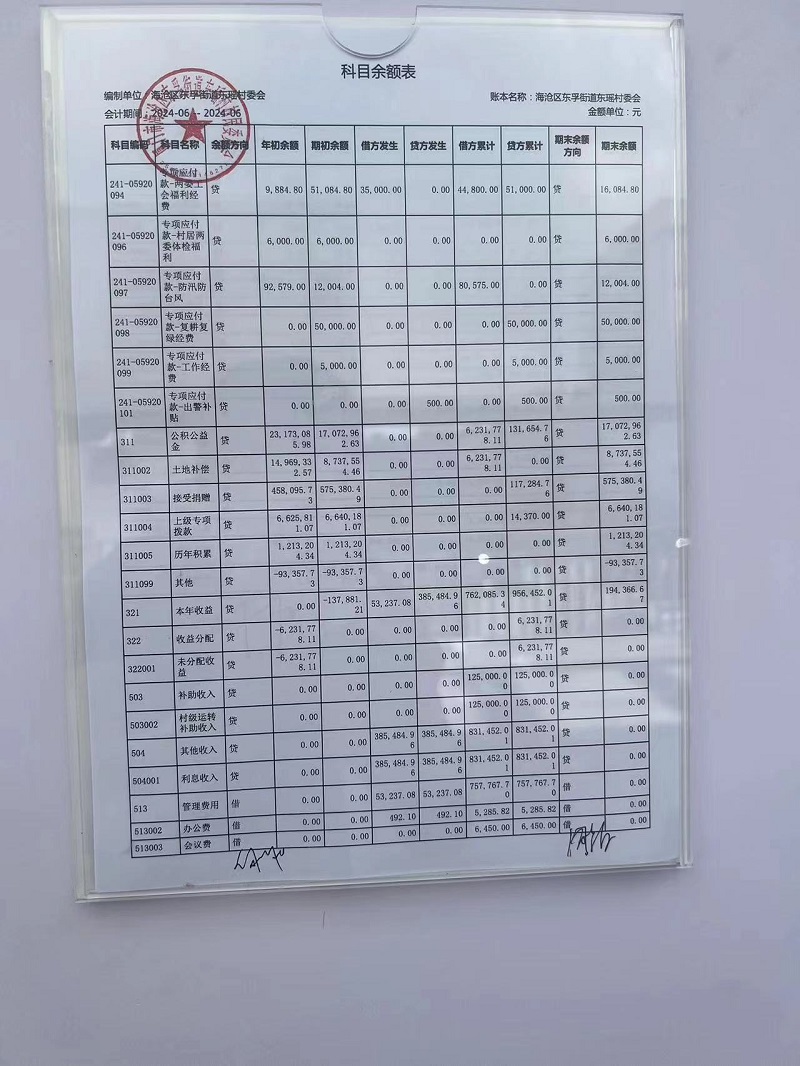 科目余额表
编制单位：海沧区东孚街道东瑶村委会 账本名称：海沧区东孚街道东瑶村委会
会计期间：2024-06 - 2024-06 金额单位：元
科目编码 科目名称 余额方向 年初余额 期初余额 借方发生 贷方发生 借方累计 贷方累计 期末余额方向 期末余额
241-05920094 专项应付款-两委工会福利经费 贷 9,884.80 51,084.80 35,000.00 0.00 44,800.00 51,000.00 贷 16,084.80
241-05920096 专项应付款-村居两委体检福利 贷 6,000.00 6,000.00 0.00 0.00 0.00 0.00 贷 6,000.00
241-05920097 专项应付款-防汛防台风 贷 92,579.00 12,004.00 0.00 0.00 80,575.00 0.00 贷 12,004.00
241-05920098 专项应付款-复耕复绿经费 贷 0.00 50,000.00 0.00 0.00 0.00 50,000.00 贷 50,000.00
241-05920099 专项应付款-工作经费 贷 0.00 5,000.00 0.00 0.00 0.00 5,000.00 贷 5,000.00
241-05920101 专项应付款-出警补贴 贷 0.00 0.00 0.00 500.00 0.00 500.00 贷 500.00
311 公积公益金 贷 23,173,085.98 17,072,962.63 0.00 0.00 6,231,778.11 131,654.76 贷 17,072,962.63
311002 土地补偿 贷 14,969,332.57 8,737,554.46 0.00 0.00 6,231,778.11 0.00 贷 8,737,554.46
311003 接受捐赠 贷 458,095.73 575,380.49 0.00 0.00 0.00 117,284.76 贷 575,380.49
311004 上级专项拨款 贷 6,625,811.07 6,640,181.07 0.00 0.00 0.00 14,370.00 贷 6,640,181.07
311005 历年积累 贷 1,213,204.34 1,213,204.34 0.00 0.00 0.00 0.00 贷 1,213,204.34
311099 其他 贷 -93,357.73 -93,357.73 0.00 0.00 0.00 0.00 贷 -93,357.73
321 本年收益 贷 0.00 -137,881.21 53,237.08 385,484.96 762,085.34 956,452.01 贷 194,366.67
322 收益分配 贷 -6,231,778.11 0.00 0.00 0.00 0.00 6,231,778.11 贷 0.00
322001 未分配收益 贷 -6,231,778.11 0.00 0.00 0.00 0.00 6,231,778.11 贷 0.00
503 补助收入 贷 0.00 0.00 0.00 0.00 125,000.00 125,000.00 贷 0.00
503002 村级运转补助收入 贷 0.00 0.00 0.00 0.00 125,000.00 125,000.00 贷 0.00
504 其他收入 贷 0.00 0.00 385,484.96 385,484.96 831,452.01 831,452.01 贷 0.00
504001 利息收入 贷 0.00 0.00 385,484.96 385,484.96 831,452.01 831,452.01 贷 0.00
513 管理费用 借 0.00 0.00 53,237.08 53,237.08 757,767.70 757,767.70 借 0.00
513002 办公费 借 0.00 0.00 492.10 492.10 5,285.82 5,285.82 借 0.00
513003 会议费 借 0.00 0.00 0.00 0.00 6,450.00 6,450.00 借 0.00